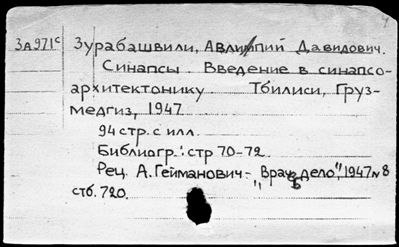 3А971с Зурабашвили, Авлипий Давидович.
Синапсы Введение в синапсо-
архитектонику Тбилиси, Груз-
медгиз, 1947
94 стр. с илл.
Библиогр.: стр 70-72
Рец. А. Гейманович - „Врач. дело", 1947 №8
стб. 720.